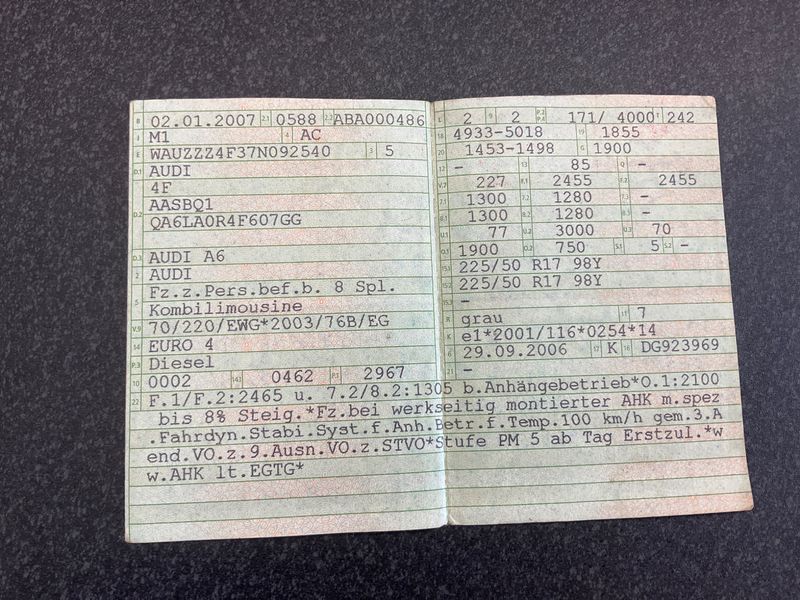 B 02.01.2007 2.1 0588 2.2 ABA000486
J M1 4 AC
E WAUZZZ4F37N092540 3 5
D.1 AUDI
4F
D.2 AASBQ1
QA6LA0R4F607GG
D.3 AUDI A6
2 AUDI
5 Fz.z.Pers.bef.b. 8 Spl.
Kombilimousine
V.9 70/220/EWG*2003/76B/EG
14 EURO 4
P.3 Diesel
10 0002 14.1 0462 P.1 2967
L 2 9 2 P.2 P.4 171/ 4000 T 242
18 4933-5018 19 1855
20 1453-1498 G 1900
12 - 13 85 Q -
V.7 227 F.1 2455 F.2 2455
7.1 1300 7.2 1280 7.3 -
8.1 1300 8.2 1280 8.3 -
U.1 77 U.2 3000 U.3 70
O.1 1900 O.2 750 S.1 5 S.2 -
15.1 225/50 R17 98Y
15.2 225/50 R17 98Y
15.3 -
R grau 11 7
K e1*2001/116*0254*14
6 29.09.2006 17 K 16 DG923969
21 -
22 F.1/F.2:2465 u. 7.2/8.2:1305 b.Anhängebetrieb*O.1:2100
bis 8% Steig.*Fz.bei werkseitig montierter AHK m.spez
.Fahrdyn.Stabi.Syst.f.Anh.Betr.f.Temp.100 km/h gem.3.A
end.VO.z.9.Ausn.VO.z.STVO*Stufe PM 5 ab Tag Erstzul.*w
w.AHK lt.EGTG*